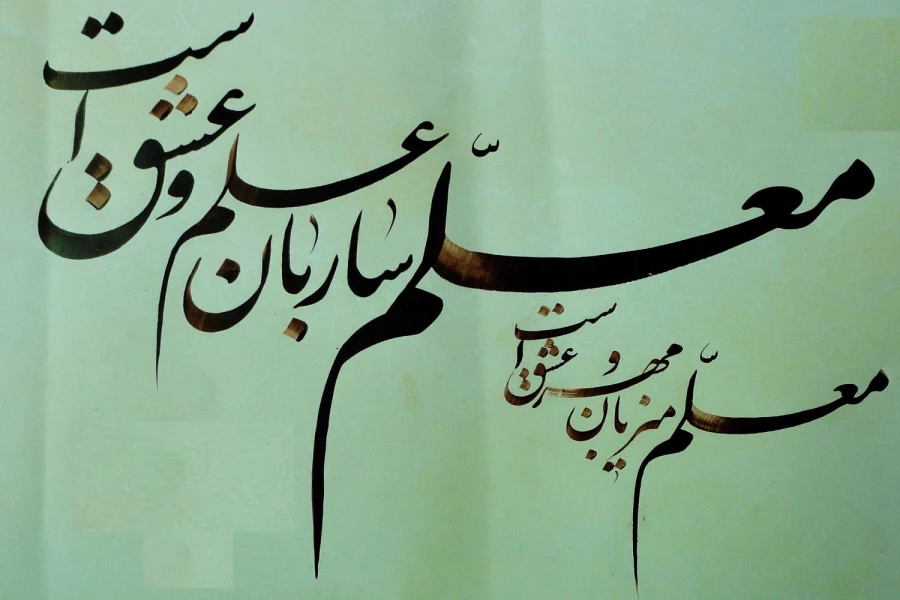 معلّم ساربان علم و عشق است
معلّم میزبان مهر و عشق است